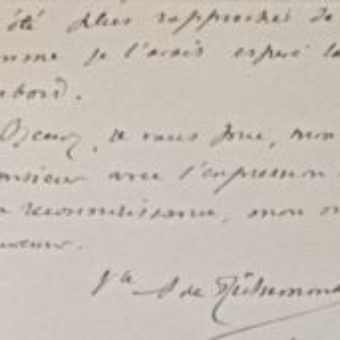 été plus rapproché de
omme je l'avais espéré
abord.
je vous prie, mon
onsieur avec l'expression
reconnaissance, mon
A de Richemond